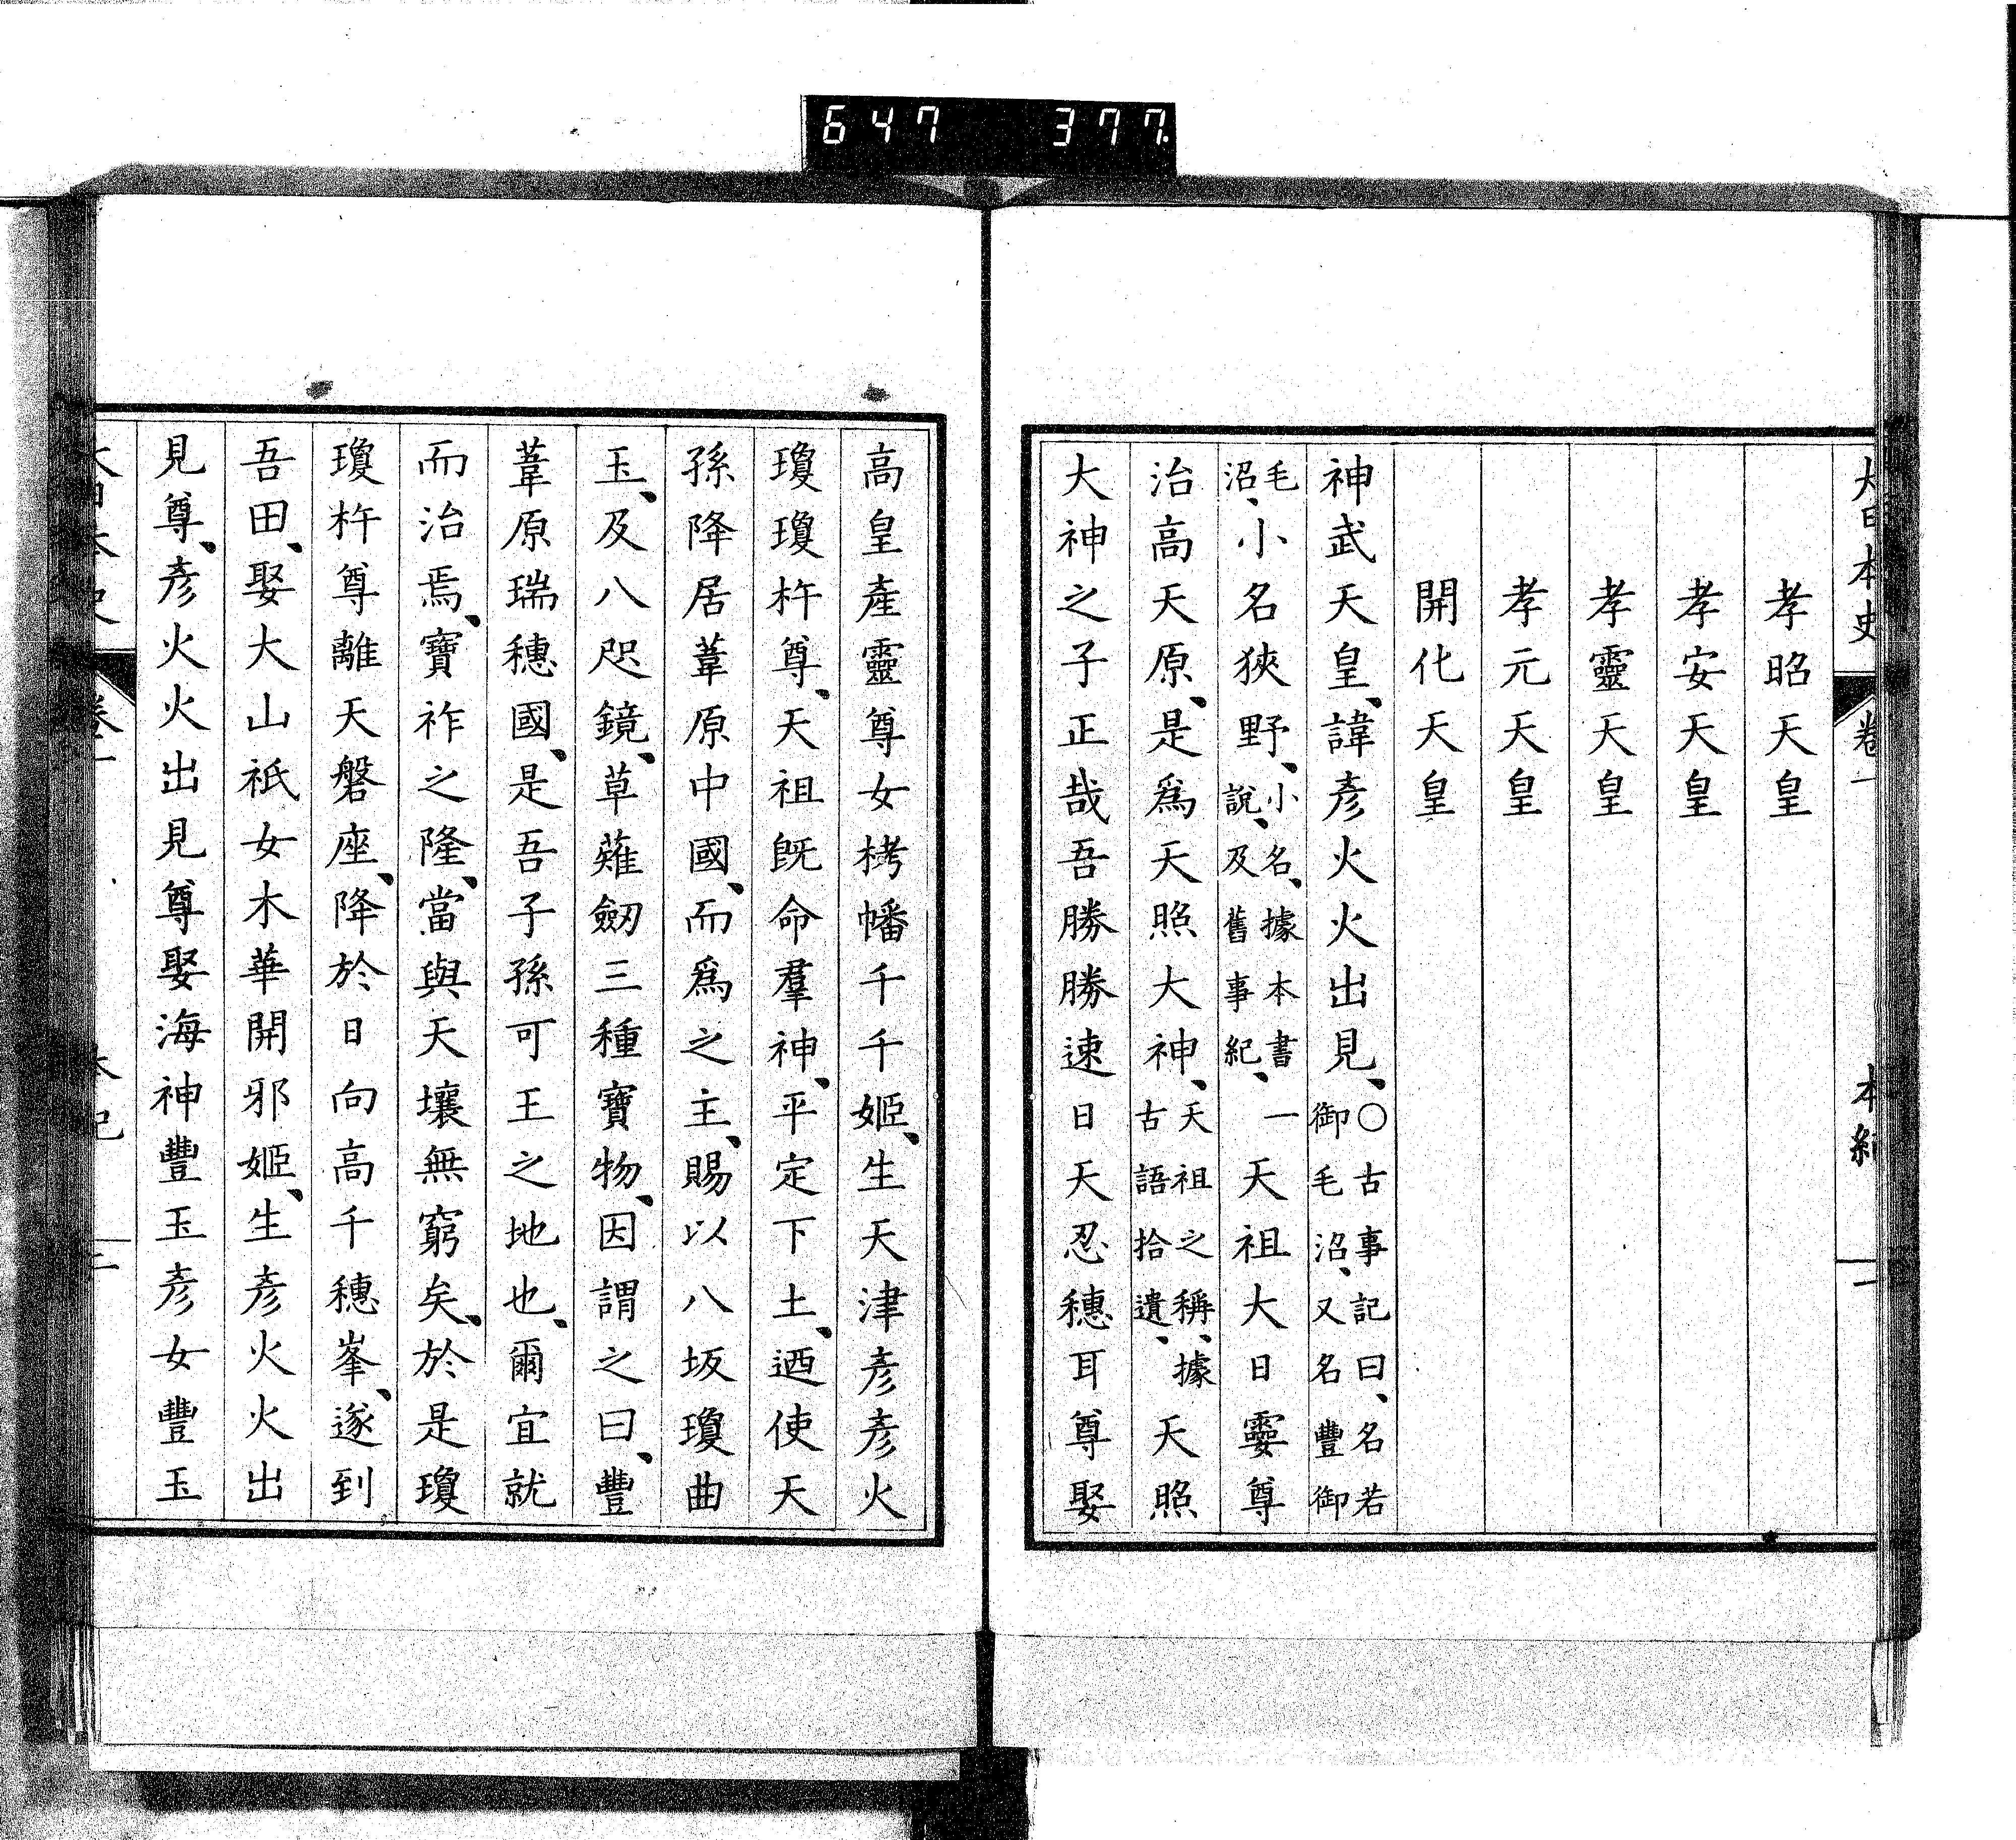 647 377.
大日本史 卷一 本紀 一
孝昭天皇
孝安天皇
孝靈天皇
孝元天皇
開化天皇
神武天皇、諱彥火火出見、○古事記曰、名若御毛沼、又名豐御
毛沼、小名狹野、小名、據本書一說、及舊事紀、天祖大日孁尊
治高天原、是爲天照大神、天祖之稱、據古語拾遺、天照
大神之子正哉吾勝勝速日天忍穗耳尊娶
高皇產靈尊女栲幡千千姬、生天津彥彥火
瓊瓊杵尊、天祖旣命羣神、平定下土、迺使天
孫降居葦原中國、而爲之主、賜以八坂瓊曲
玉、及八咫鏡、草薙劒三種寶物、因謂之曰、豐
葦原瑞穗國、是吾子孫可王之地也、爾宜就
而治焉、寶祚之隆、當與天壤無窮矣、於是瓊
瓊杵尊離天磐座、降於日向高千穗峯、遂到
吾田、娶大山祇女木華開邪姬、生彥火火出
見尊、彥火火出見尊娶海神豐玉彥女豐玉